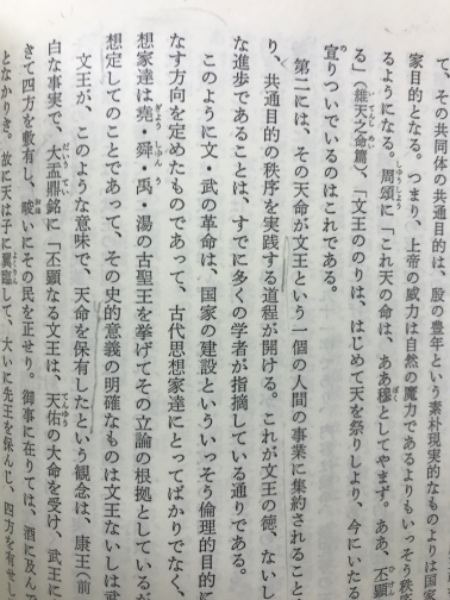 て、その共同体の共通目的は、殷の豊年という素朴現実的なものよりは国家
家目的となる。つまり、上帝の威力は自然の魔力であるよりもいっそう秩序
るようになる。周頌に「これ天の命は、ああ穆としてやまず。ああ、丕顕
る」(維天之命篇)、「文王ののりは、はじめて天を祭りしより、今にいたる
宣りついでいるのはこれである。
第二には、その天命が文王という一個の人間の事業に集約されること
り、共通目的の秩序を実践する道程が開ける。これが文王の徳、ないし
な進歩であることは、すでに多くの学者が指摘している通りである。
このように文・武の革命は、国家の建設といういっそう倫理的目的に
なす方向を定めたものであって、古代思想家達にとってばかりでなく、
想家達は堯・舜・禹・湯の古聖王を挙げてその立論の根拠としているが
想定してのことであって、その史的意義の明確なものは文王ないしは武
文王が、このような意味で、天命を保有したという観念は、康王(前
白な事実で、大盂鼎銘に「丕顕なる文王は、天佑の大命を受け、武王に
きて四方を敷有し、畯いにその民を正せり。御事に在りては、酒に及んで
となかりき。故に天は子に翼臨して、大いに先王を保んじ、四方を有せし